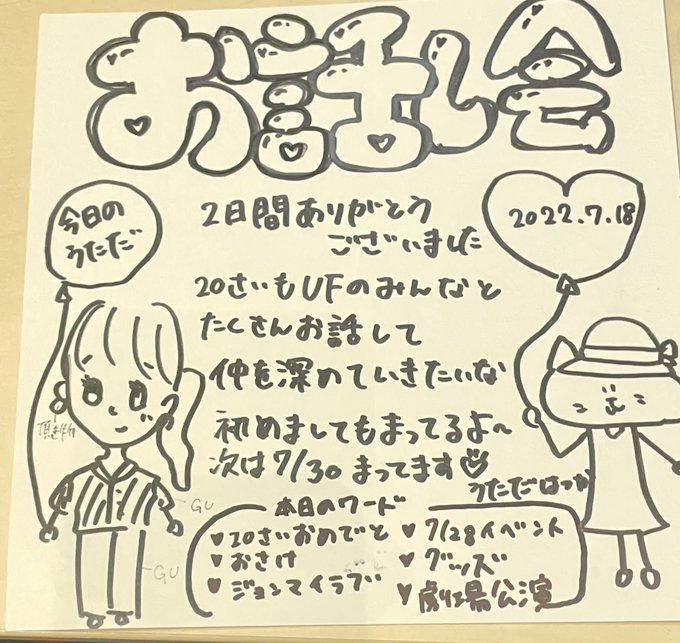 お話し会
今日の
うただ
2日間ありがとう
ございました
2022.7.18
20さいもUFのみんなと
たくさんお話して
仲を深めていきたいな
初めましてもまってるよ〜
次は7/30まってます
うただはつか
頂き物
GU
GU
本日のワード
♥20さいおめでと
♥おさけ
♥ジョンマイラブ
♥7/28イベント
♥グッズ
♥劇場公演